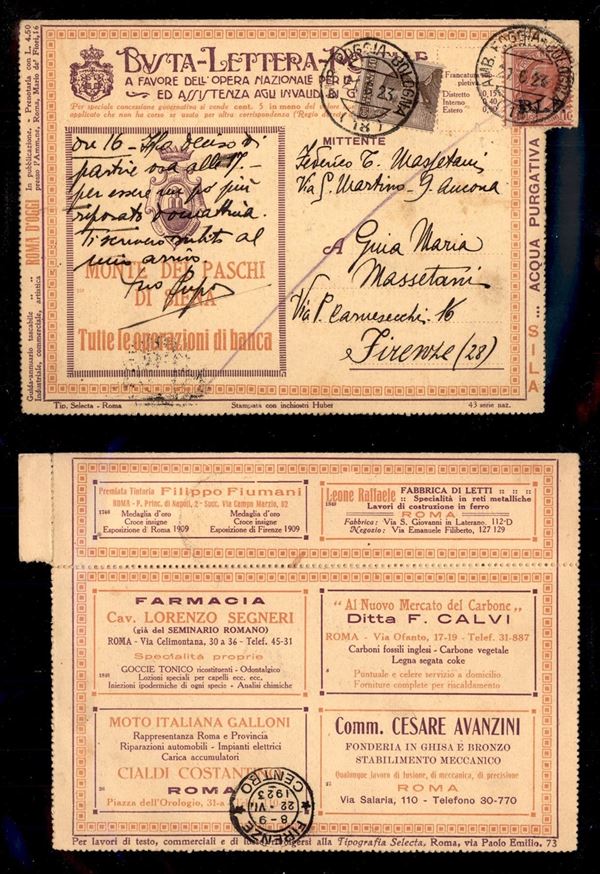 BUSTA-LETTERA-PO
A FAVORE DELL'OPERA NAZIONALE PER
ED ASSISTENZA AGLI INVALIDI
Per speciale concessione governativa si vende cent. 5 in meno del valore
applicato che non ha corso se usato per altra corrispondenza (Regio
Francatura
Distretto 0,15
Interno 0,40
Estero
AMB. FOGGIA-BOLOGNA
23
(18)
AMB. FOGGIA-BOLOGNA
23
BLP
MITTENTE
Federico T. Massetani
Via S. Martino - 9 Ancona
A Guia Maria
Massetani
Via P. Carnesecchi 16
Firenze (28)
ore 16 - Ho deciso di
partire ora alle 17 -
per essere un po' più
riposato domattina.
Ti scriverò subito al
mio arrivo
tuo
MONTE DEI PASCHI
DI SIENA
Tutte le operazioni di banca
Guida-annuario tascabile ROMA D'OGGI In pubblicazione. - Prenotarla con L. 4.50
Industriale, commerciale, artistica presso l'Amm.ne, Roma, Mario de' Fiori, 16
... ACQUA PURGATIVA
... SILA
Tip. Selecta - Roma
Stampata con inchiostri Huber
43 serie naz.
Premiata Tintoria Filippo Fiumani
ROMA - P. Princ. di Napoli, 2 - Succ. Via Campo Marzio, 82
1746
Medaglia d'oro Medaglia d'oro
Croce insigne Croce insigne
Esposizione di Roma 1909 Esposizione di Firenze 1909
Leone Raffaele FABBRICA DI LETTI
Specialità in reti metalliche
Lavori di costruzione in ferro
ROMA
Fabbrica: Via S. Giovanni in Laterano, 112-D
Negozio: Via Emanuele Filiberto, 127 129
FARMACIA
Cav. LORENZO SEGNERI
(già del SEMINARIO ROMANO)
ROMA - Via Celimontana, 30 a 36 - Telef. 45-31
Specialità proprie
GOCCIE TONICO ricostituenti - Odontalgico
Lozioni speciali per capelli ecc. ecc.
Iniezioni ipodermiche di ogni specie - Analisi chimiche
"Al Nuovo Mercato del Carbone"
Ditta F. CALVI
ROMA - Via Ofanto, 17-19 - Telef. 31-887
Carboni fossili inglesi - Carbone vegetale
Legna segata coke
Puntuale e celere servizio a domicilio
Forniture complete per riscaldamento
MOTO ITALIANA GALLONI
Rappresentanza Roma e Provincia
Riparazioni automobili - Impianti elettrici
Carica accumulatori
CIALDI COSTANT
ROMA
Piazza dell'Orologio, 31-a
FIRENZE
CENTRO
8-9
22 · VI
1923
Comm. CESARE AVANZINI
FONDERIA IN GHISA E BRONZO
STABILIMENTO MECCANICO
Qualunque lavoro di fusione, di meccanica, di precisione
ROMA
Via Salaria, 110 - Telefono 30-770
Per lavori di testo, commerciali e di lusso rivolgersi alla Tipografia Selecta, Roma, via Paolo Emilio, 73